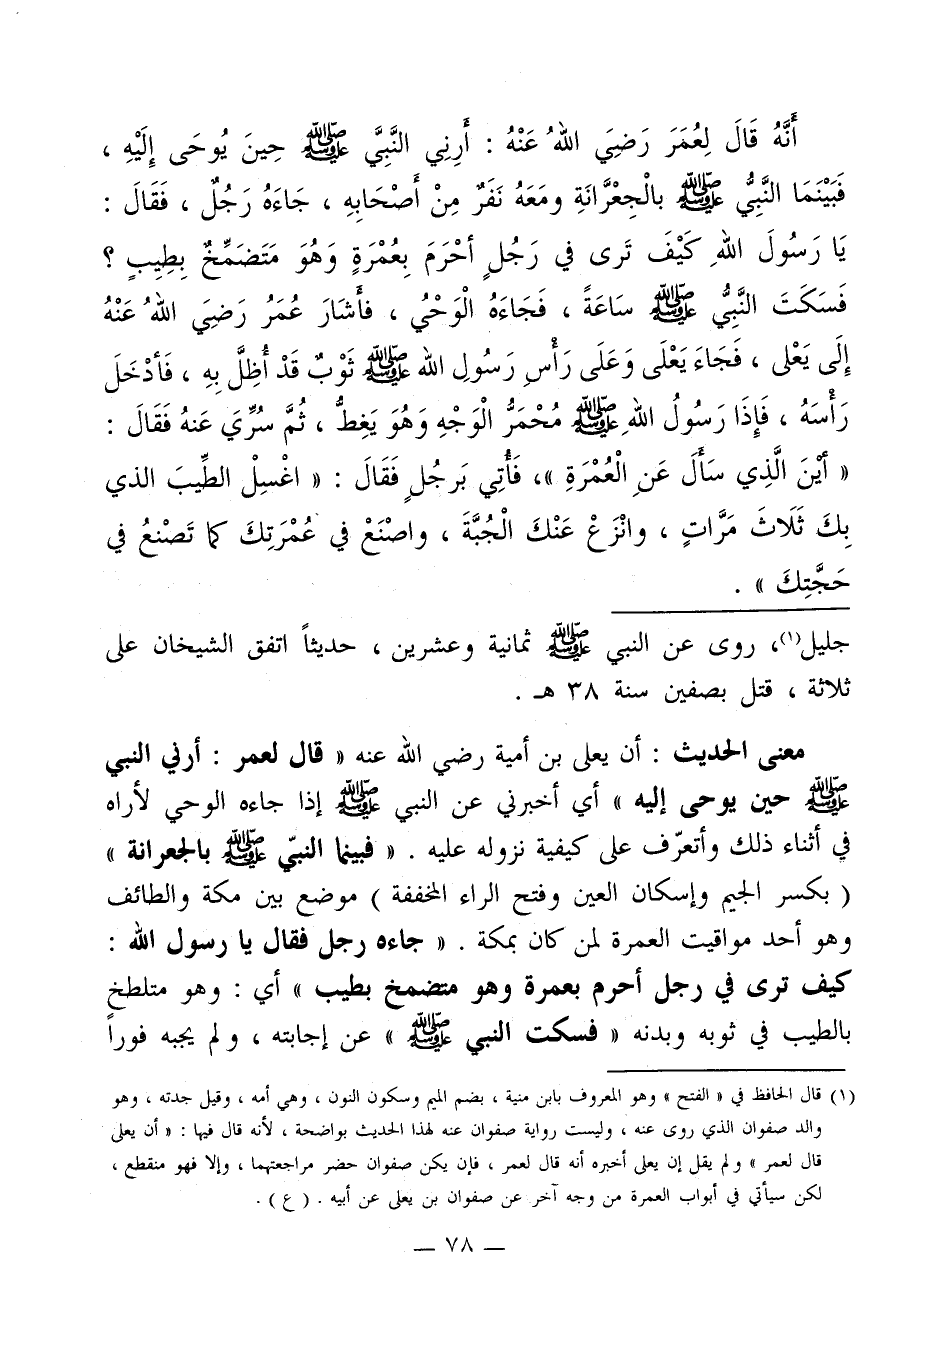 أَنَّهُ قَالَ لِعُمَرَ رَضِيَ اللهُ عَنْهُ : أَرِنِي النَّبِيَّ ﷺ حِينَ يُوحَى إِلَيْهِ ،
فَبَيْنَمَا النَّبِيُّ ﷺ بالْجِعْرَّانَةِ ومَعَهُ نَفَرٌ مِنْ أَصْحَابِهِ ، جَاءَهُ رَجُلٌ ، فَقَالَ :
يَا رَسُولَ اللهِ كَيْفَ تَرى في رَجُلٍ أحْرَمَ بِعُمْرَةٍ وَهُوَ مَتَضمِّخٌ بِطِيبٍ ؟
فَسَكَتَ النَّبِيُّ ﷺ سَاعَةً ، فَجَاءَهُ الْوَحْيُ ، فأَشَارَ عُمَرُ رَضِيَ اللهُ عَنْهُ
إِلَى يَعْلى ، فَجَاءَ يَعْلَى وَعَلَى رَأْسِ رَسُولِ الله ﷺ ثَوْبٌ قَدْ أُظِلَّ بِهِ ، فَأدْخَلَ
رَأْسَهُ ، فَإِذَا رَسُولُ اللهِ ﷺ مُحْمَرُّ الْوَجْهِ وَهُوَ يَغِطُّ ، ثُمَّ سُرِّيَ عَنهُ فَقَالَ :
« أيْنَ الَّذِي سَأَلَ عَنِ الْعُمْرَةِ »، فَأُتِي بَرجُلٍ فَقَالَ : « اغْسِلْ الطِّيبَ الذي
بِكَ ثَلَاثَ مَرَّاتٍ ، وانْزَعْ عَنْكَ الْجُبَّةَ ، واصْنَعْ في عُمْرَتِكَ كما تَصْنْعُ في
حَجَّتِكَ » .
جليل(١)، روى عن النبي ﷺ ثمانية وعشرين ، حديثاً اتفق الشيخان على
ثلاثة ، قتل بصفين سنة ٣٨ هـ .
معنى الحديث : أن يعلى بن أمية رضي الله عنه « قال لعمر : أرني النبي
ﷺ حين يوحى إليه » أي أخبرني عن النبي ﷺ إذا جاءه الوحي لأراه
في أثناء ذلك وأتعرّف على كيفية نزوله عليه . « فبينما النبيّ ﷺ بالجعرانة »
( بكسر الجيم وإسكان العين وفتح الراء المخففة ) موضع بين مكة والطائف
وهو أحد مواقيت العمرة لمن كان بمكة . « جاءه رجل فقال يا رسول الله :
كيف ترى في رجل أحرم بعمرة وهو متضمخ بطيب » أي : وهو متلطخ
بالطيب في ثوبه وبدنه « فسكت النبي ﷺ » عن إجابته ، ولم يجبه فوراً
(١) قال الحافظ في « الفتح » وهو المعروف بابن منية ، بضم الميم وسكون النون ، وهي أمه ، وقيل جدته ، وهو
والد صفوان الذي روى عنه ، وليست رواية صفوان عنه لهذا الحديث بواضحة ، لأنه قال فيها : « أن يعلى
قال لعمر » ولم يقل إن يعلى أخبره أنه قال لعمر ، فإن يكن صفوان حضر مراجعتهما ، وإلا فهو منقطع ،
لكن سيأتي في أبواب العمرة من وجه آخر عن صفوان بن يعلى عن أبيه . ( ع ) .
— ٧٨ —